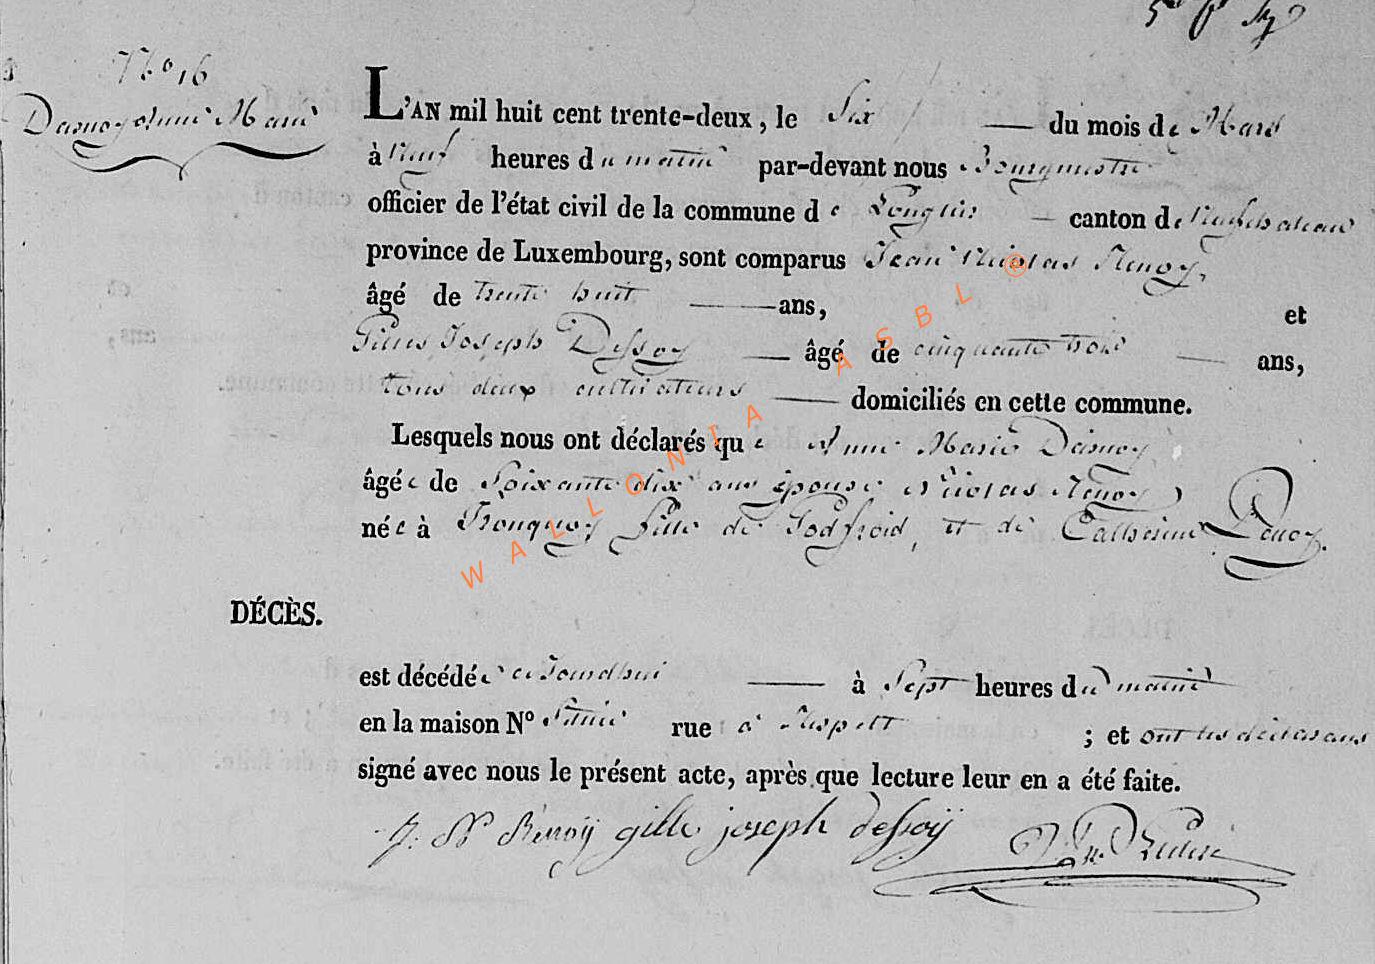 N° 16
Dasnoy Anne Marie
L'AN mil huit cent trente-deux, le Six du mois de Mars
à Neuf heures du matin par-devant nous Bourgmestre
officier de l'état civil de la commune de Longlier canton de Neufchateau
province de Luxembourg, sont comparus Jean Nicolas Renoy,
âgé de trente huit ans, et
Gilles Joseph Dessoy âgé de cinquante trois ans,
tous deux cultivateurs domiciliés en cette commune.
Lesquels nous ont déclarés que Anne Marie Dasnoy
âgée de Soixante dix ans épouse Nicolas Renoy
née à Tronquoy fille de Godfroid, et de Catherine
DÉCÈS.
est décédée ce Jourdhui à Sept heures du matin
en la maison N° rue à ; et ont les déclarans
signé avec nous le présent acte, après que lecture leur en a été faite.
J. N Rénoÿ gille joseph dessoÿ
WALLONIA ASBL ®